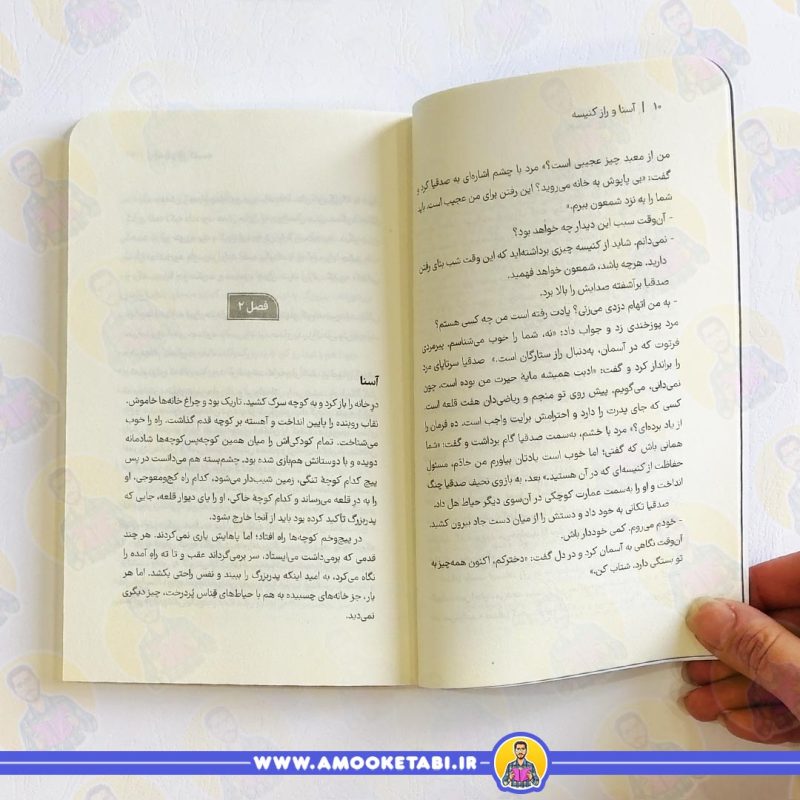 ۱۰ | آسنا و راز کنیسه
من از معبد چیز عجیبی است؟» مرد با چشم اشاره‌ای به صدقیا کرد و
گفت: «بی پاپوش به خانه می‌روید؟ این رفتن برای من عجیب است. باید
شما را به نزد شمعون ببرم.»
- آن‌وقت سبب این دیدار چه خواهد بود؟
- نمی‌دانم. شاید از کنیسه چیزی برداشته‌اید که این وقت شب بنای رفتن
دارید. هرچه باشد، شمعون خواهد فهمید.
صدقیا برآشفته صدایش را بالا برد.
- به من اتهام دزدی می‌زنی؟ یادت رفته است من چه کسی هستم؟
مرد پوزخندی زد و جواب داد: «نه، شما را خوب می‌شناسم. پیرمردی
فرتوت که در آسمان، به‌دنبال راز ستارگان است.» صدقیا سرتاپای مرد
را برانداز کرد و گفت: «ادبت همیشه مایهٔ حیرت من بوده است. چون
نمی‌دانی، می‌گویم. پیش روی تو منجم و ریاضی‌دان هفت قلعه است.
کسی که جای پدرت را دارد و احترامش برایت واجب است. ده فرمان را
از یاد برده‌ای؟» مرد با خشم، به‌سمت صدقیا گام برداشت و گفت: «شما
همانی باش که گفتی؛ اما خوب است یادتان بیاورم من خادم، مسئول
حفاظت از کنیسه‌ای که در آن هستید.» بعد، به بازوی نحیف صدقیا چنگ
انداخت و او را به‌سمت عمارت کوچکی در آن‌سوی دیگر حیاط هل داد.
صدقیا تکانی به خود داد و دستش را از میان دست جاد بیرون کشید.
- خودم می‌روم. کمی خوددار باش.
آن‌وقت نگاهی به آسمان کرد و در دل گفت: «دخترکم، اکنون همه‌چیز به
تو بستگی دارد. شتاب کن.»
فصل ۲
آسنا
درِ خانه را باز کرد و به کوچه سرک کشید. تاریک بود و چراغ خانه‌ها خاموش.
نقاب روبنده را پایین انداخت و آهسته بر کوچه قدم گذاشت. راه را خوب
می‌شناخت. تمام کودکی‌اش را میان همین کوچه‌پس‌کوچه‌ها شادمانه
دویده و با دوستانش هم‌بازی شده بود. چشم‌بسته هم می‌دانست در پس
پیچ کدام کوچهٔ تنگی، زمین شیب‌دار می‌شود، کدام راه کج‌ومعوجی، او
را به درِ قلعه می‌رساند و کدام کوچهٔ خاکی، او را پای دیوار قلعه، جایی که
پدربزرگ تأکید کرده بود باید از آنجا خارج بشود.
در پیچ‌وخم کوچه‌ها راه افتاد؛ اما پاهایش یاری نمی‌کردند. هر چند
قدمی که برمی‌داشت می‌ایستاد، سر برمی‌گرداند عقب و تا ته راهِ آمده را
نگاه می‌کرد، به امید اینکه پدربزرگ را ببیند و نفس راحتی بکشد. اما هر
بار، جز خانه‌های چسبیده به هم با حیاط‌های قِناس پُردرخت، چیز دیگری
نمی‌دید.
WWW.AMOOKETABI.IR